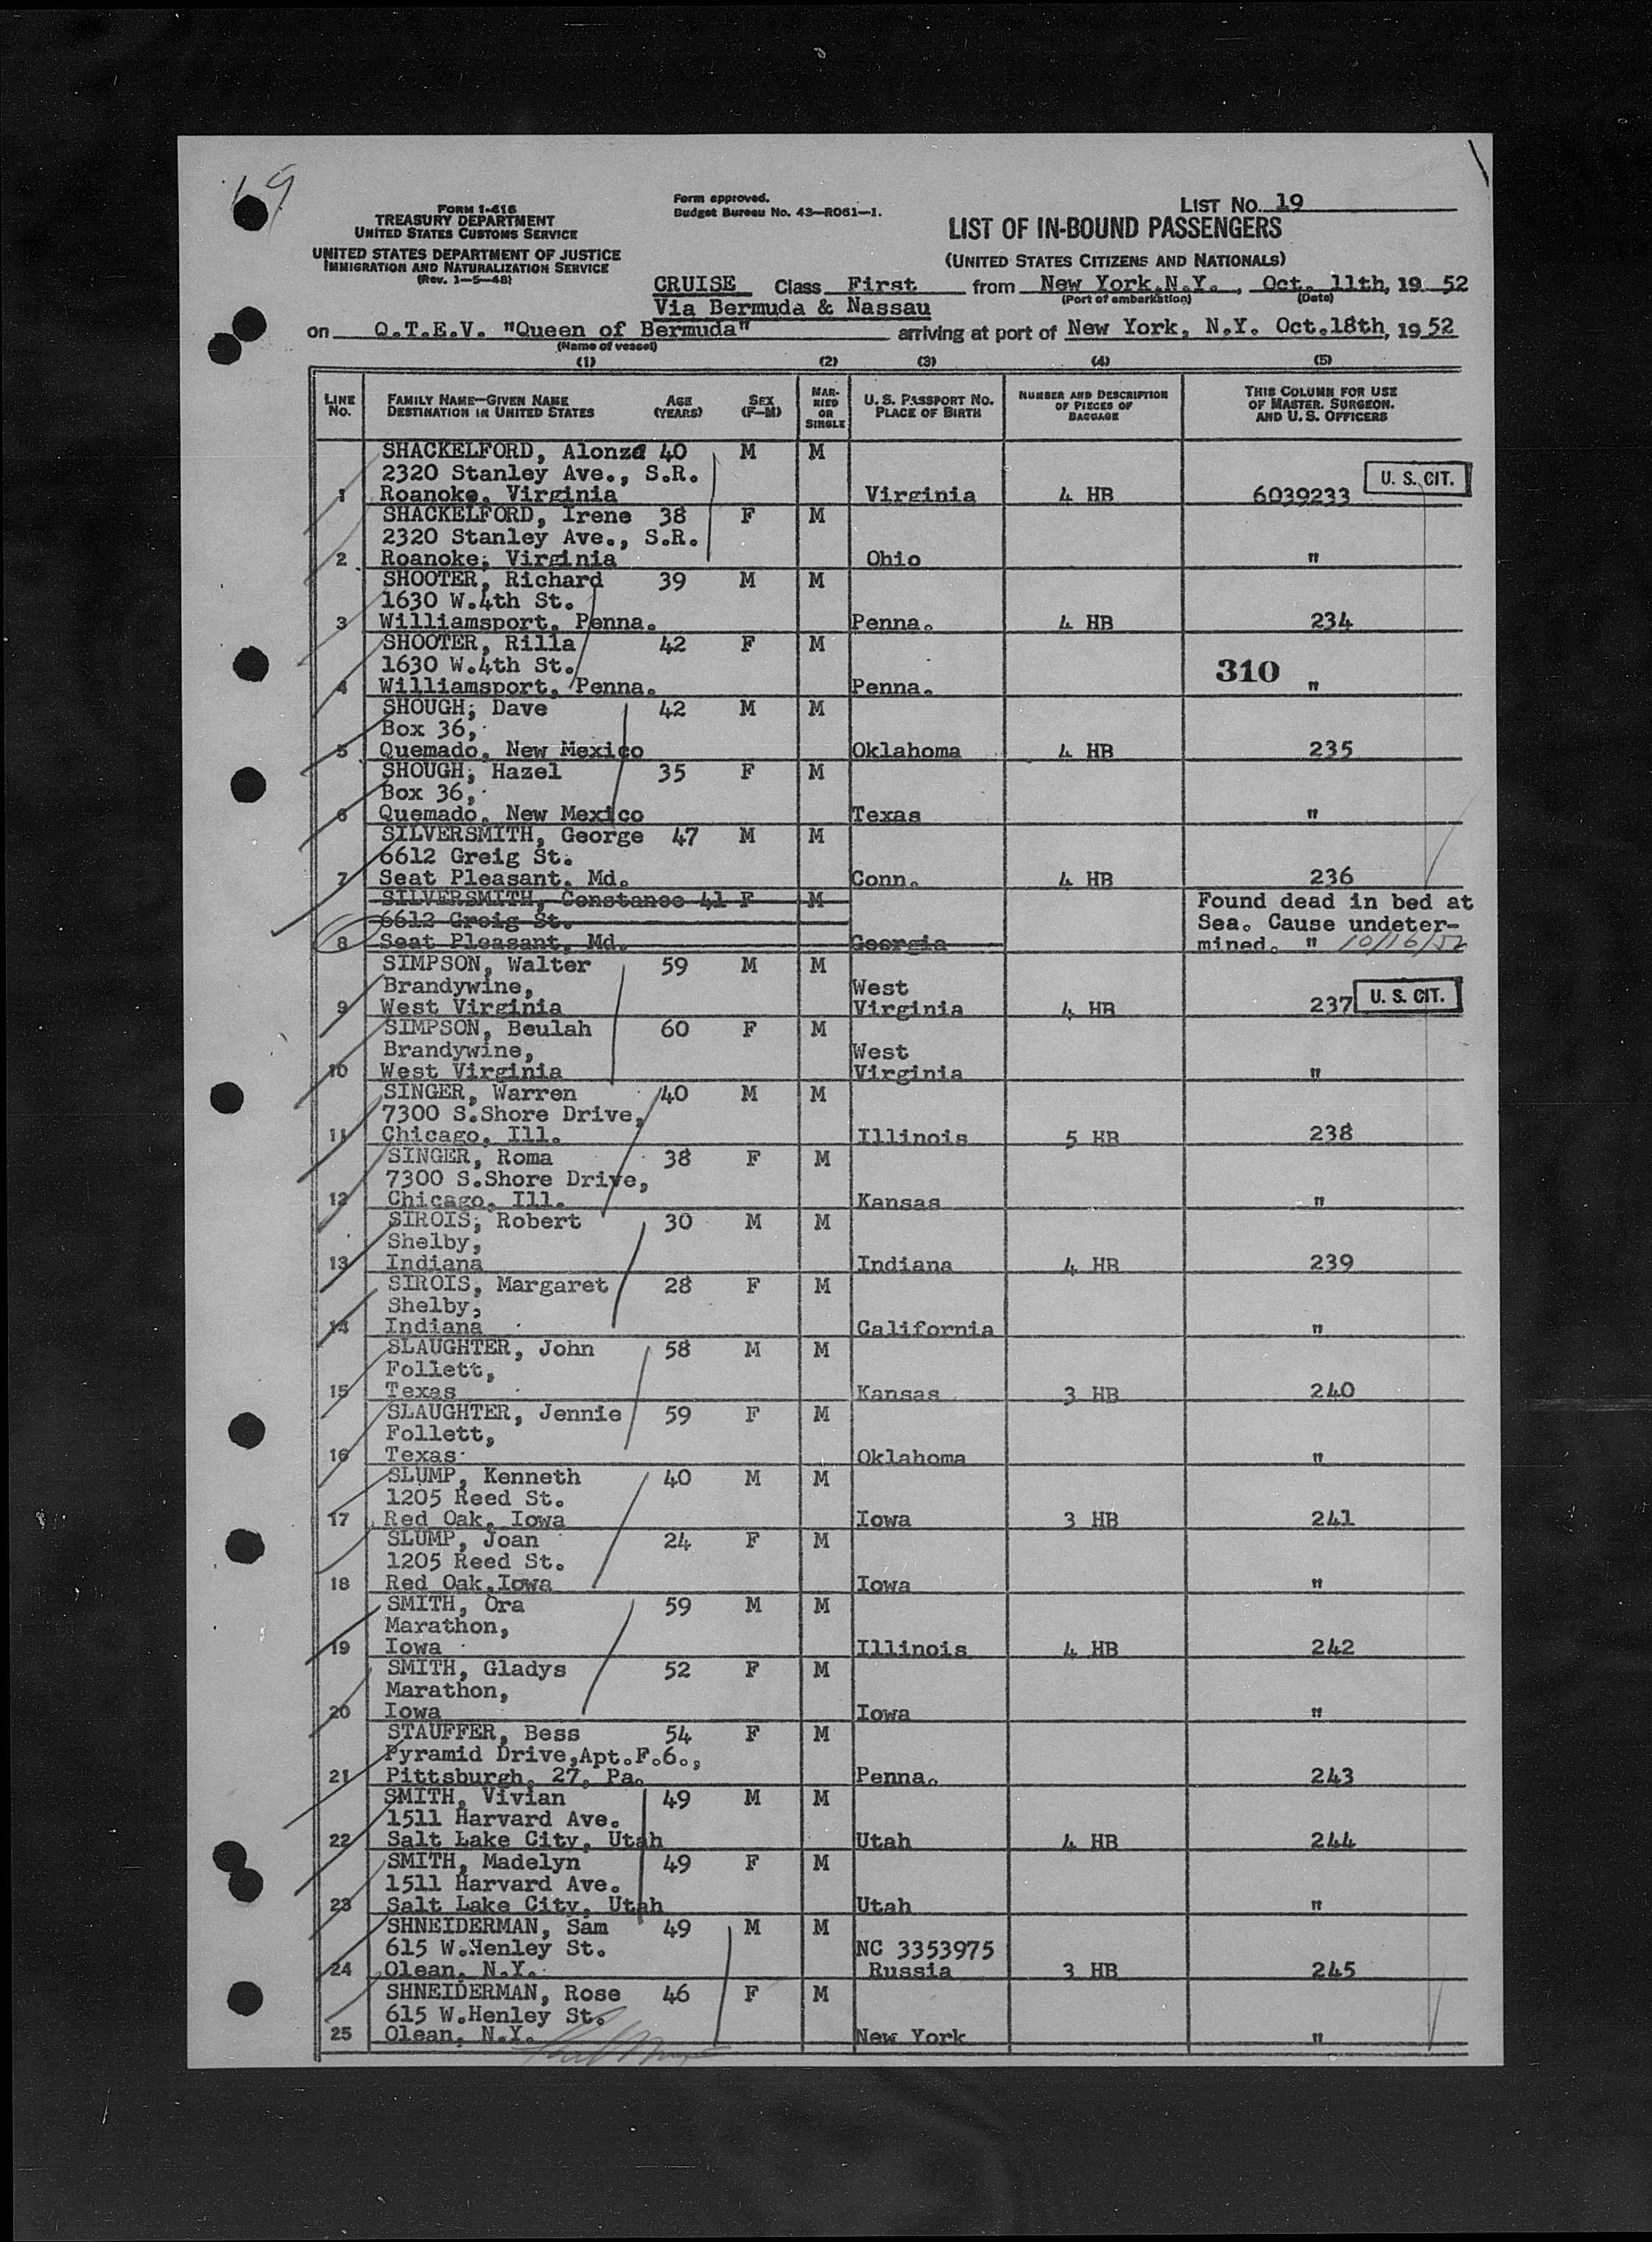 69
FORM I-416
TREASURY DEPARTMENT
UNITED STATES CUSTOMS SERVICE
UNITED STATES DEPARTMENT OF JUSTICE
IMMIGRATION AND NATURALIZATION SERVICE
(Rev. 1-5-48)
Form approved.
Budget Bureau No. 43-R061-1.
LIST NO. 19
LIST OF IN-BOUND PASSENGERS
(UNITED STATES CITIZENS AND NATIONALS)
CRUISE Class First from New York.N.Y., Oct. 11th, 19 52
(Port of embarkation) (Date)
Via Bermuda & Nassau
on Q.T.E.V. "Queen of Bermuda" arriving at port of New York, N.Y. Oct.18th, 19 52
(Name of vessel)
(1) (2) (3) (4) (5)
LINE NO. FAMILY NAME—GIVEN NAME DESTINATION IN UNITED STATES AGE (YEARS) SEX (F-M) MARRIED OR SINGLE U. S. PASSPORT NO. PLACE OF BIRTH NUMBER AND DESCRIPTION OF PIECES OF BAGGAGE THIS COLUMN FOR USE OF MASTER, SURGEON, AND U. S. OFFICERS
SHACKELFORD, Alonza 40 M M
2320 Stanley Ave., S.R. U. S. CIT.
1 Roanoke, Virginia Virginia 4 HB 6039233
SHACKELFORD, Irene 38 F M
2320 Stanley Ave., S.R.
2 Roanoke, Virginia Ohio "
SHOOTER, Richard 39 M M
1630 W.4th St.
3 Williamsport, Penna. Penna. 4 HB 234
SHOOTER, Rilla 42 F M
1630 W.4th St. 310
4 Williamsport, Penna. Penna. "
SHOUGH, Dave 42 M M
Box 36,
5 Quemado, New Mexico Oklahoma 4 HB 235
SHOUGH, Hazel 35 F M
Box 36,
6 Quemado, New Mexico Texas "
SILVERSMITH, George 47 M M
6612 Greig St.
7 Seat Pleasant, Md. Conn. 4 HB 236
SILVERSMITH, Constance 41 F M Found dead in bed at
6612 Greig St. Sea. Cause undeter-
8 Seat Pleasant, Md. Georgia mined. " 10/16/52
SIMPSON, Walter 59 M M
Brandywine, West
9 West Virginia Virginia 4 HB 237 U. S. CIT.
SIMPSON, Beulah 60 F M
Brandywine, West
10 West Virginia Virginia "
SINGER, Warren 40 M M
7300 S.Shore Drive,
11 Chicago, Ill. Illinois 5 HB 238
SINGER, Roma 38 F M
7300 S.Shore Drive,
12 Chicago, Ill. Kansas "
SIROIS, Robert 30 M M
Shelby,
13 Indiana Indiana 4 HB 239
SIROIS, Margaret 28 F M
Shelby,
14 Indiana California "
SLAUGHTER, John 58 M M
Follett,
15 Texas Kansas 3 HB 240
SLAUGHTER, Jennie 59 F M
Follett,
16 Texas Oklahoma "
SLUMP, Kenneth 40 M M
1205 Reed St.
17 Red Oak, Iowa Iowa 3 HB 241
SLUMP, Joan 24 F M
1205 Reed St.
18 Red Oak,Iowa Iowa "
SMITH, Ora 59 M M
Marathon,
19 Iowa Illinois 4 HB 242
SMITH, Gladys 52 F M
Marathon,
20 Iowa Iowa "
STAUFFER, Bess 54 F M
Pyramid Drive,Apt.F.6.,
21 Pittsburgh, 27, Pa. Penna. 243
SMITH, Vivian 49 M M
1511 Harvard Ave.
22 Salt Lake City, Utah Utah 4 HB 244
SMITH, Madelyn 49 F M
1511 Harvard Ave.
23 Salt Lake City, Utah Utah "
SHNEIDERMAN, Sam 49 M M
615 W.Henley St. NC 3353975
24 Olean, N.Y. Russia 3 HB 245
SHNEIDERMAN, Rose 46 F M
615 W.Henley St.
25 Olean, N.Y. New York "